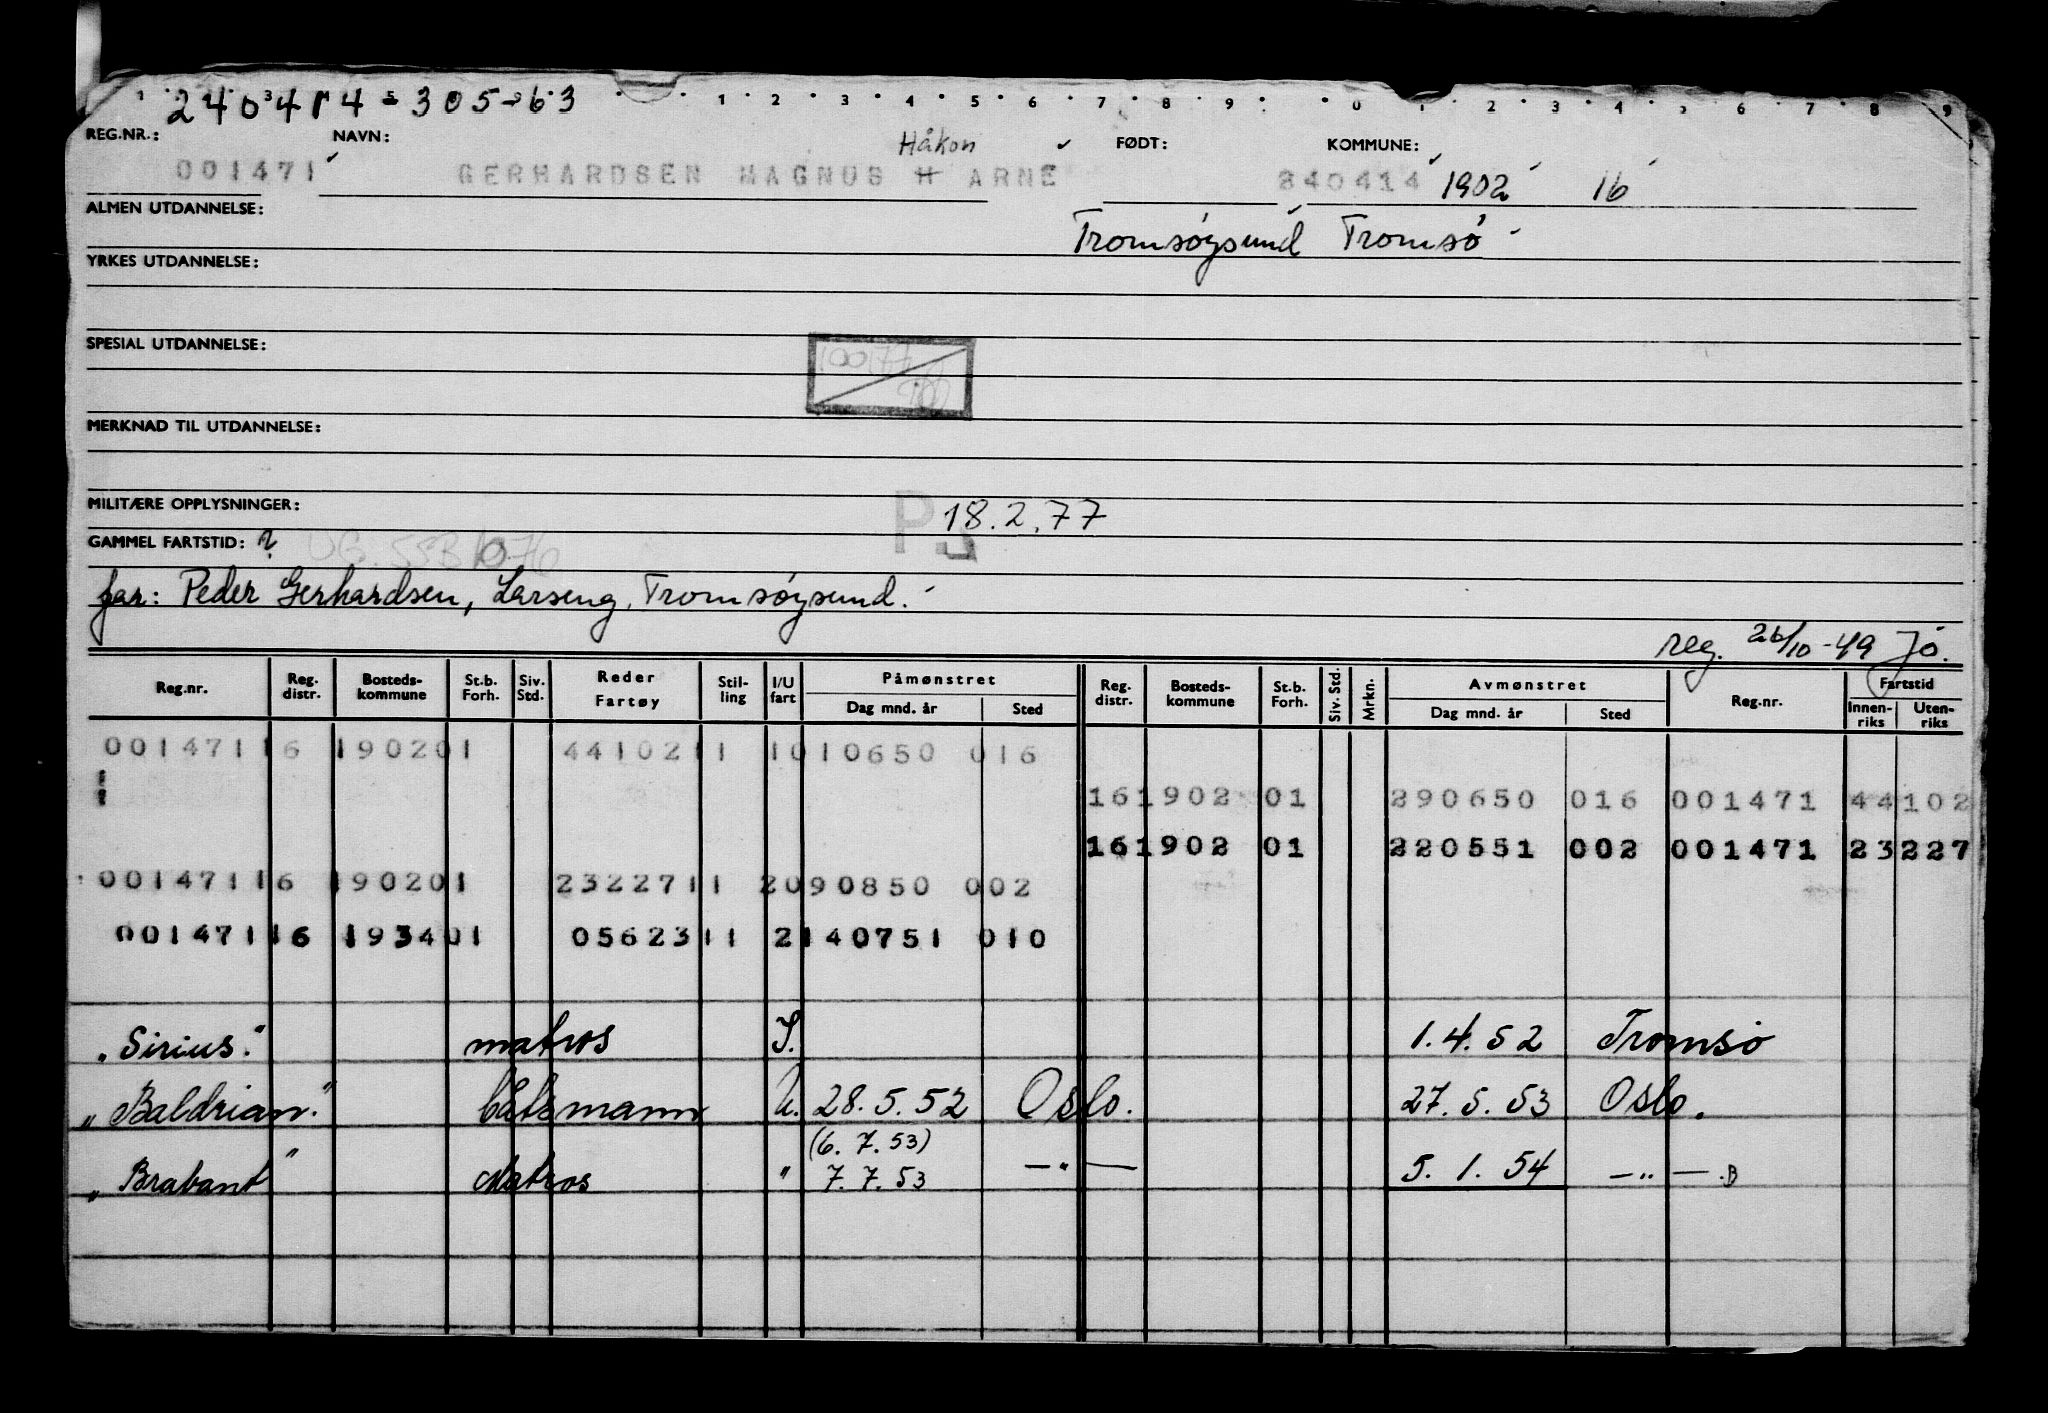 240414-305-63
1 2 3 4 5 6 7 8 9 0 1 2 3 4 5 6 7 8 9
REG.NR.: NAVN: Håkon FØDT: KOMMUNE:
001471 GERHARDSEN MAGNUS H ARNE 240414 1902 16
ALMEN UTDANNELSE: Tromsøysund Tromsø
YRKES UTDANNELSE:
SPESIAL UTDANNELSE:
MERKNAD TIL UTDANNELSE:
MILITÆRE OPPLYSNINGER: 18.2.77
GAMMEL FARTSTID: ?
far: Peder Gerhardsen, Larseng, Tromsøysund.
reg. 26/10-49 Jo.
Reg.nr. Reg. distr. Bosteds-kommune St.b. Forh. Siv. Std. Reder Fartøy Stil-ling I/U fart Påmønstret Dag mnd. år Sted Reg. distr. Bosteds-kommune St.b. Forh. Siv. Std. Mrkn. Avmønstret Dag mnd. år Sted Reg.nr. Fartstid Innen-riks Uten-riks
00147116 190201 4410211 1010650 016
161902 01 290650 016 001471 44102
161902 01 220551 002 001471 23227
00147116 190201 2322711 2090850 002
00147116 193401 0562311 2140751 010
"Sirius." matros I. 1.4.52 Tromsø
"Baldrian." Båtsmann U. 28.5.52 Oslo. 27.5.53 Oslo.
(6.7.53)
"Brabant" Matros " 7.7.53 —"— 5.1.54 —"— .B